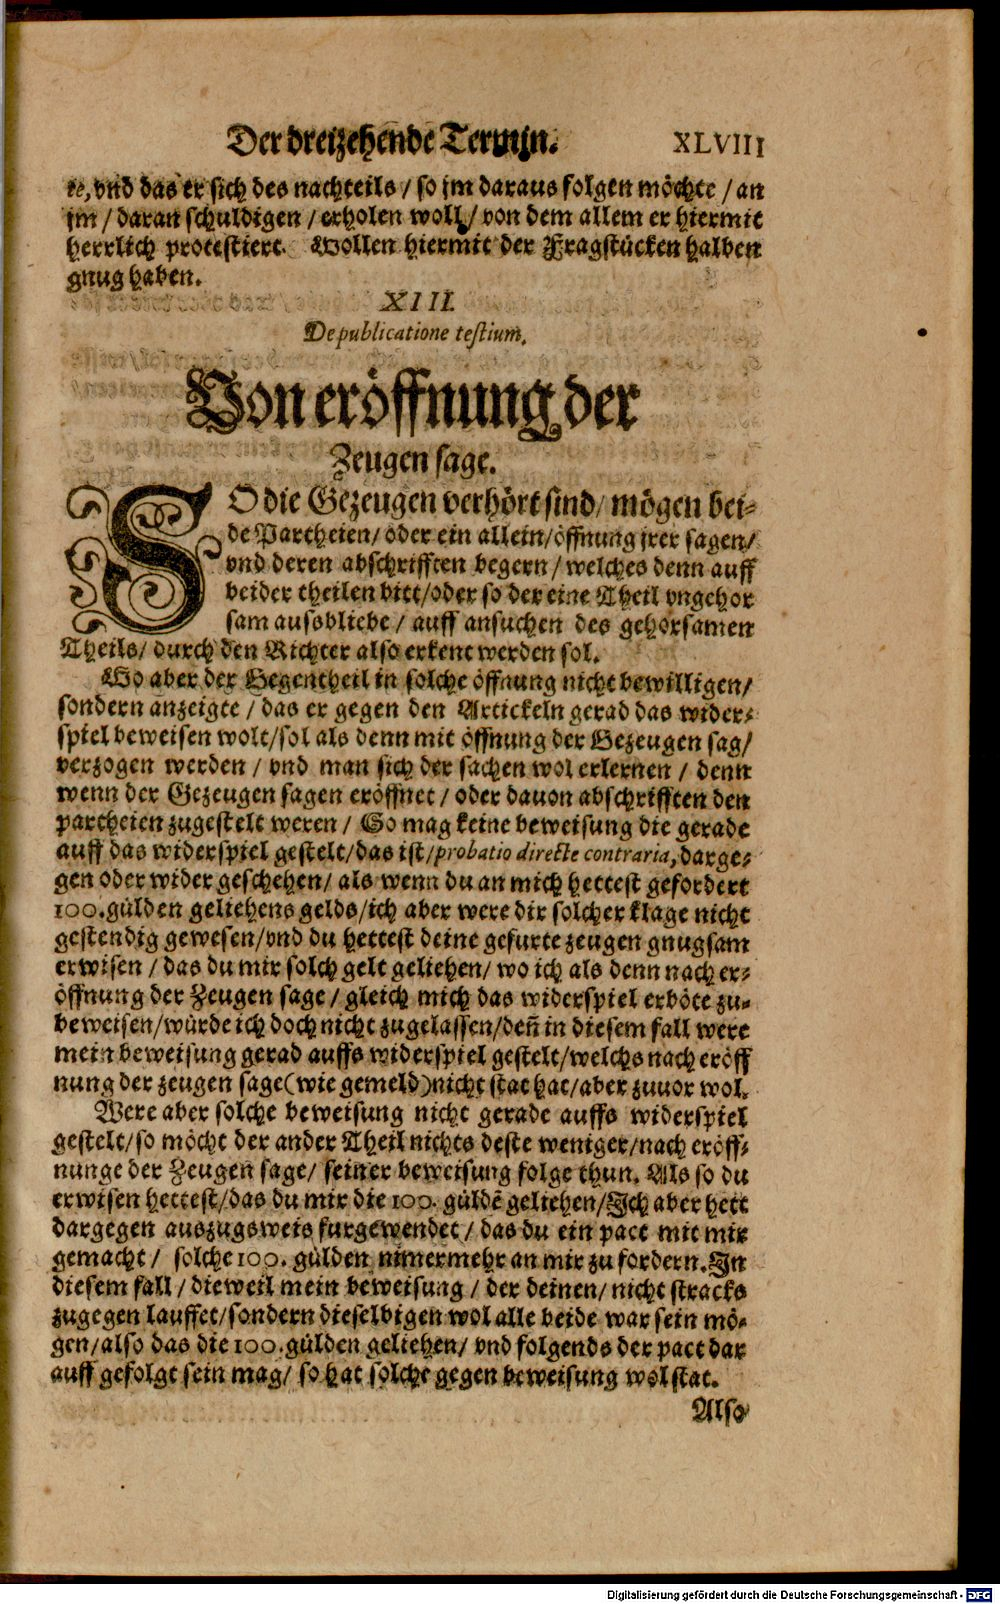 Der dreizehende Termin. XLVIII
te, vnd das er sich des nachteils / so jm daraus folgen möchte / an
jm / daran schuldigen / erholen woll / von dem allem er hiermit
herrlich protestiert. Wollen hiermit der Fragstücken halben
gnug haben.
XIII.
De publicatione testium.
Von eröffnung der
Zeugen sage.
SO die Gezeugen verhört sind / mögen bei-
de Partheien / oder ein allein / öffnung jrer sagen /
vnd deren abschrifften begern / welches denn auff
beider theilen bitt / oder so der eine Theil vngehor
sam ausbliebe / auff ansuchen des gehorsamen
Theils / durch den Richter also erkent werden sol.
Wo aber der Gegentheil in solche öffnung nicht bewilligen /
sondern anzeigte / das er gegen den Artickeln gerad das wider-
spiel beweisen wolt / sol als denn mit öffnung der Gezeugen sag /
verzogen werden / vnd man sich der sachen wol erlernen / denn
wenn der Gezeugen sagen eröffnet / oder dauon abschrifften den
partheien zugestelt weren / So mag keine beweisung die gerade
auff das widerspiel gestelt / das ist / probatio directe contraria, darge-
gen oder wider geschehen / als wenn du an mich hettest gefordert
100. gülden geliehens gelds / ich aber were dir solcher klage nicht
gestendig gewesen / vnd du hettest deine gefurte zeugen gnugsam
erwisen / das du mir solch gelt geliehen / wo ich als denn nach er-
öffnung der Zeugen sage / gleich mich das widerspiel erböte zu-
beweisen / würde ich doch nicht zugelassen / den̄ in diesem fall were
mein beweisung gerad auffs widerspiel gestelt / welchs nach eröff
nung der zeugen sage (wie gemeld) nicht stat hat / aber zuuor wol.
Were aber solche beweisung nicht gerade auffs widerspiel
gestelt / so möcht der ander Theil nichts deste weniger / nach eröff-
nunge der Zeugen sage / seiner beweisung folge thun. Als so du
erwisen hettest / das du mir die 100. güldē geliehen / Ich aber hett
dargegen auszugsweis furgewendet / das du ein pact mit mir
gemacht / solche 100. gülden nimermehr an mir zu fordern. In
diesem fall / dieweil mein beweisung / der deinen / nicht stracks
zugegen lauffet / sondern dieselbigen wol alle beide war sein mö-
gen / also das die 100. gülden geliehen / vnd folgends der pact dar
auff gefolgt sein mag / so hat solche gegen beweisung wol stat.
Also
Digitalisierung gefördert durch die Deutsche Forschungsgemeinschaft - DFG